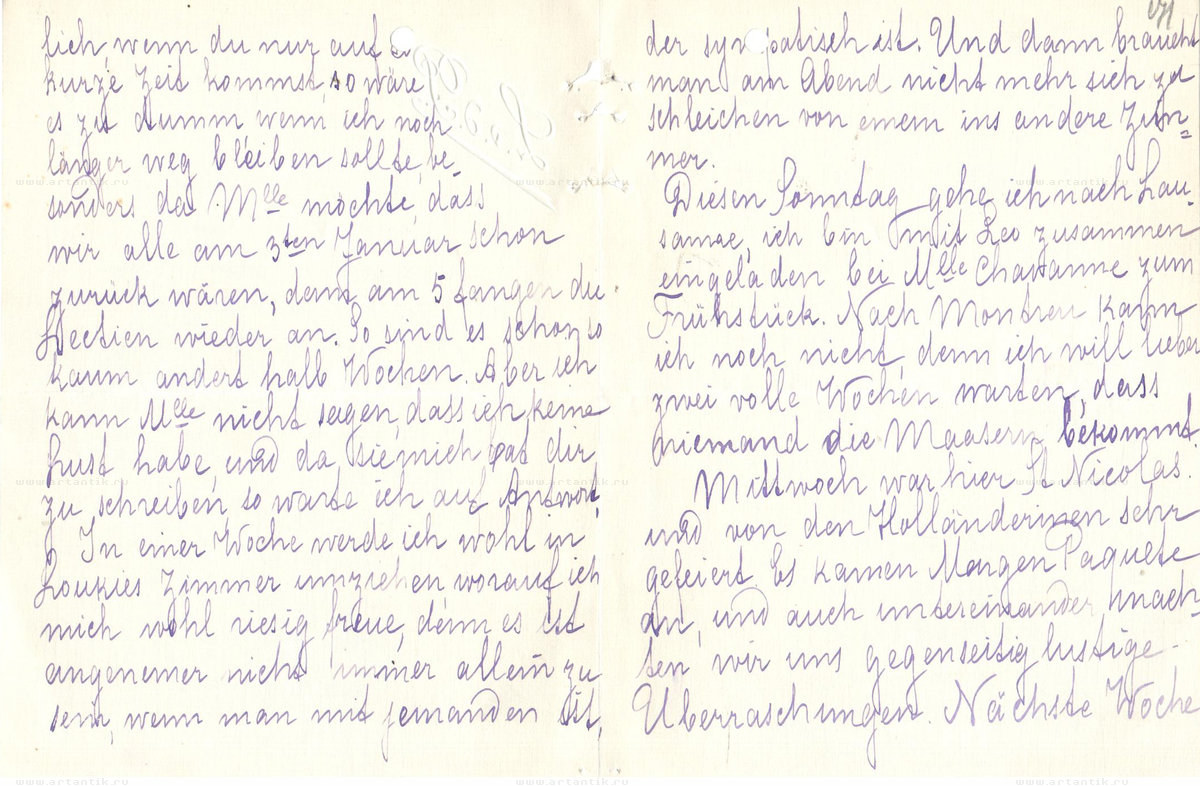 lich, wenn du nur auf
kurze Zeit kommst, so wäre
es zu dumm wenn ich noch
länger weg bleiben sollte, be-
sonders da Mlle möchte, dass
wir alle am 3ten Januar schon
zurück wären, denn am 5 fangen die
Lectien wieder an. So sind es schon so
kaum andert halb Wochen. Aber ich
kann Mlle nicht sagen, dass ich keine
Lust habe, und da sie mich bat dir
zu schreiben, so warte ich auf Antwort.
In einer Woche werde ich wohl in
Loukies Zimmer umziehen worauf ich
mich wohl riesig freue, denn es ist
angenemer nicht immer allein zu
sein, wenn man mit jemanden ist,
der sympatisch ist. Und dann braucht
man am Abend nicht mehr sich zu
schleichen von einem ins andere Zim=
mer.
Diesen Sonntag gehe ich nach Lau-
sanne, ich bin mit Leo zusammen
eingeladen bei Mlle Chavanne zum
Frühstück. Nach Montreu kann
ich noch nicht, denn ich will lieber
zwei volle Wochen warten, dass
niemand die Maasern bekommt.
Mittwoch war hier St Nicolas.
und von den Holländerinen sehr
gefeiert. Es kamen Morgen Paquete
an, und auch untereinander mach-
ten wir uns gegenseitig lustige
Überraschungen. Nächste Woche
www.artantik.ru